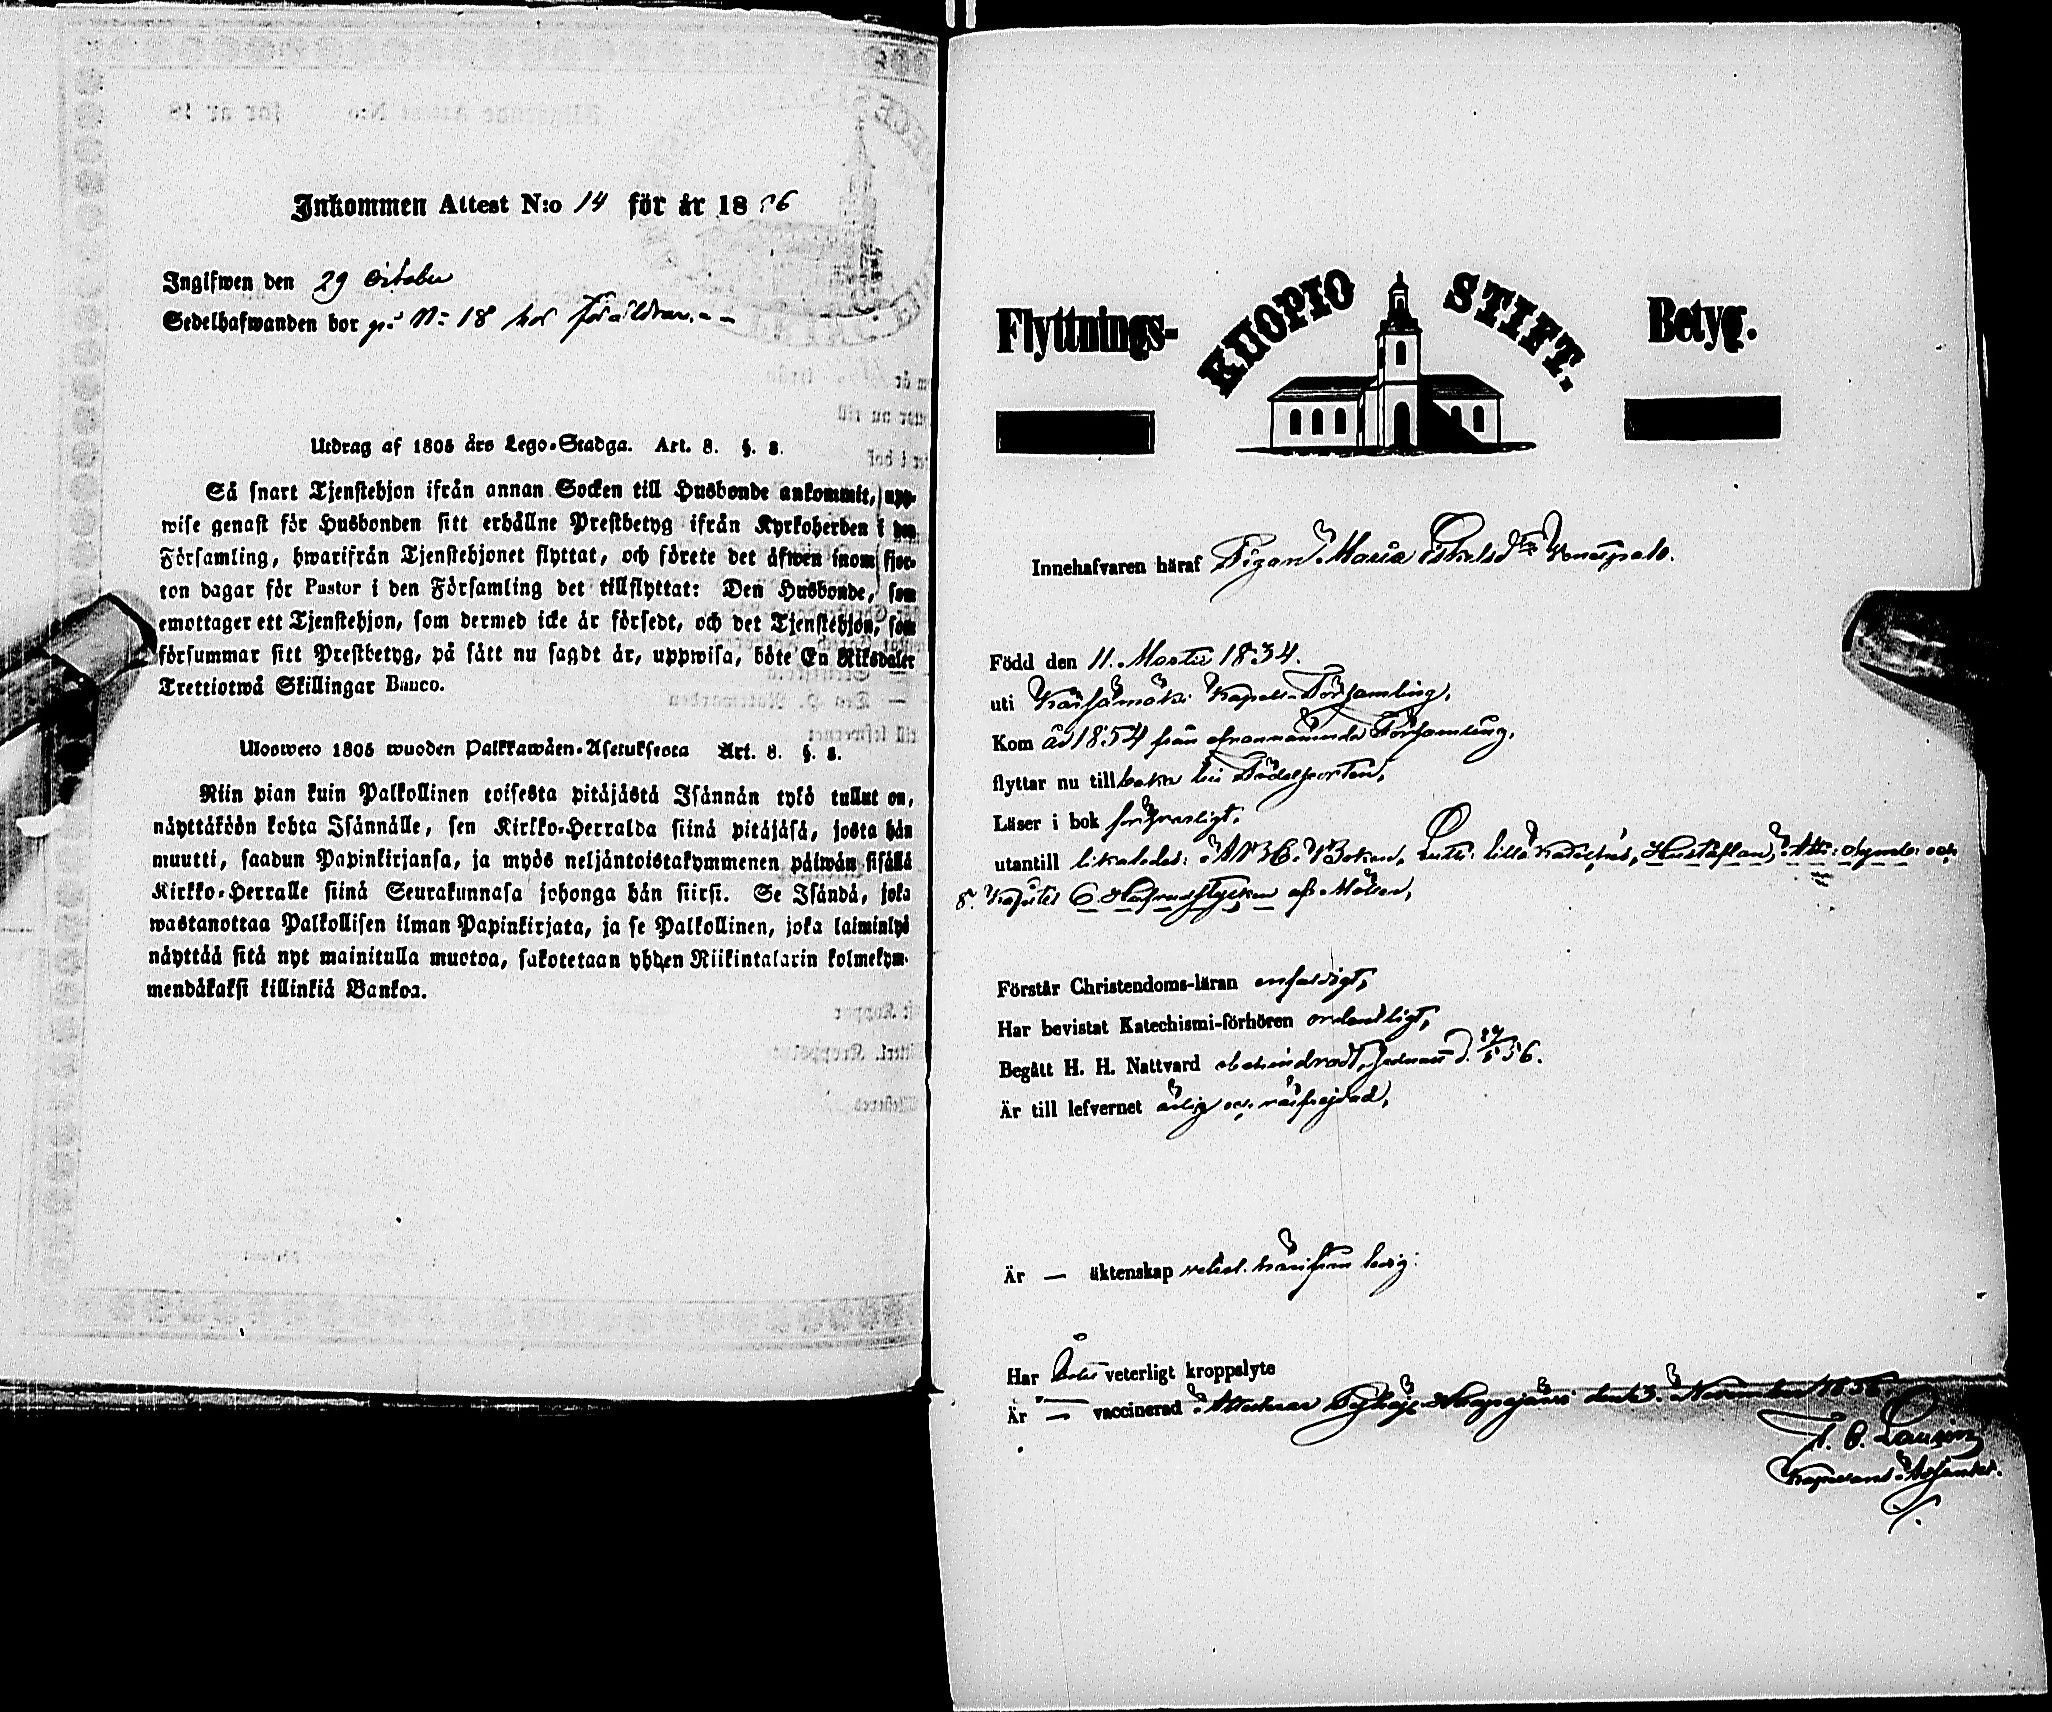 Inkommen Attest N:o 14 för år 18 56
Ingifwen den 29 October
Sedelhafwanden bor på N: 18 hos föräldrar. - -
Utdrag af 1805 års Lego-Stadga. Art. 8. §. 2.
Så snart Tjenstehjon ifrån annan Socken till Husbonde ankommit, upp-
wise genast för Husbonden sitt erhållne Prestbetyg ifrån Kyrkoherden i den
Församling, hwarifrån Tjenstehjonet flyttat, och förete det äfwen inom fjor-
ton dagar för Pastor i den Församling det tillflyttat: Den Husbonde, som
emottager ett Tjenstehjon, som dermed icke är försedt, och det Tjenstehjon, som
försummar sitt Prestbetyg, på sätt nu sagdt är, uppwisa, böte En Riksdaler
Trettiotwå Skillingar Banco.
Ulosweto 1805 wuoden Palkkawäen-Asetuksesta Art. 8. §. 2.
Niin pian kuin Palkollinen toisesta pitäjästä Isännän tykö tullut on,
näyttäköön kohta Isännälle, sen Kirkko-Herralda siinä pitäjäsä, josta hän
muutti, saadun Papinkirjansa, ja myös neljäntoistakymmenen päiwän sisällä
Kirkko-Herralle siinä Seurakunnasa johonga hän siirsi. Se Isändä, joka
wastanottaa Palkollisen ilman Papinkirjata, ja se Palkollinen, joka laiminlyö
näyttää sitä nyt mainitulla muotoa, sakotetaan yhden Riikintalarin kolmekym-
mendäkaksi killinkiä Bankoa.
Flyttnings- KUOPIO STIFT. Betyg.
Innehafvaren häraf Pigan Maria
Född den 11. Martii 1834.
uti Kärsämäki Kapells Församling,
Kom år 1854 från ofvannämnda Församling,
flyttar nu tillbaka till Födelseorten,
Läser i bok försvarligt,
utantill likaledes: A B C Boken, Luth: lilla Katekes, Hustaflan, Ath: Symb: och
6 Hufvudstycken af Möller,
Förstår Christendoms-läran enfaldigt,
Har bevistat Katechismi-förhören ordentligt,
Begått H. H. Nattvard obehindradt, sednast d. 56.
Är till lefvernet ärlig och välfrejdad,
Är — äktenskap härifrån ledig.
Har Intet veterligt kroppslyte
Är — vaccinerad Attesterar Pyhäjärvi den 3. November 1856
Kapellans Adjunkt.